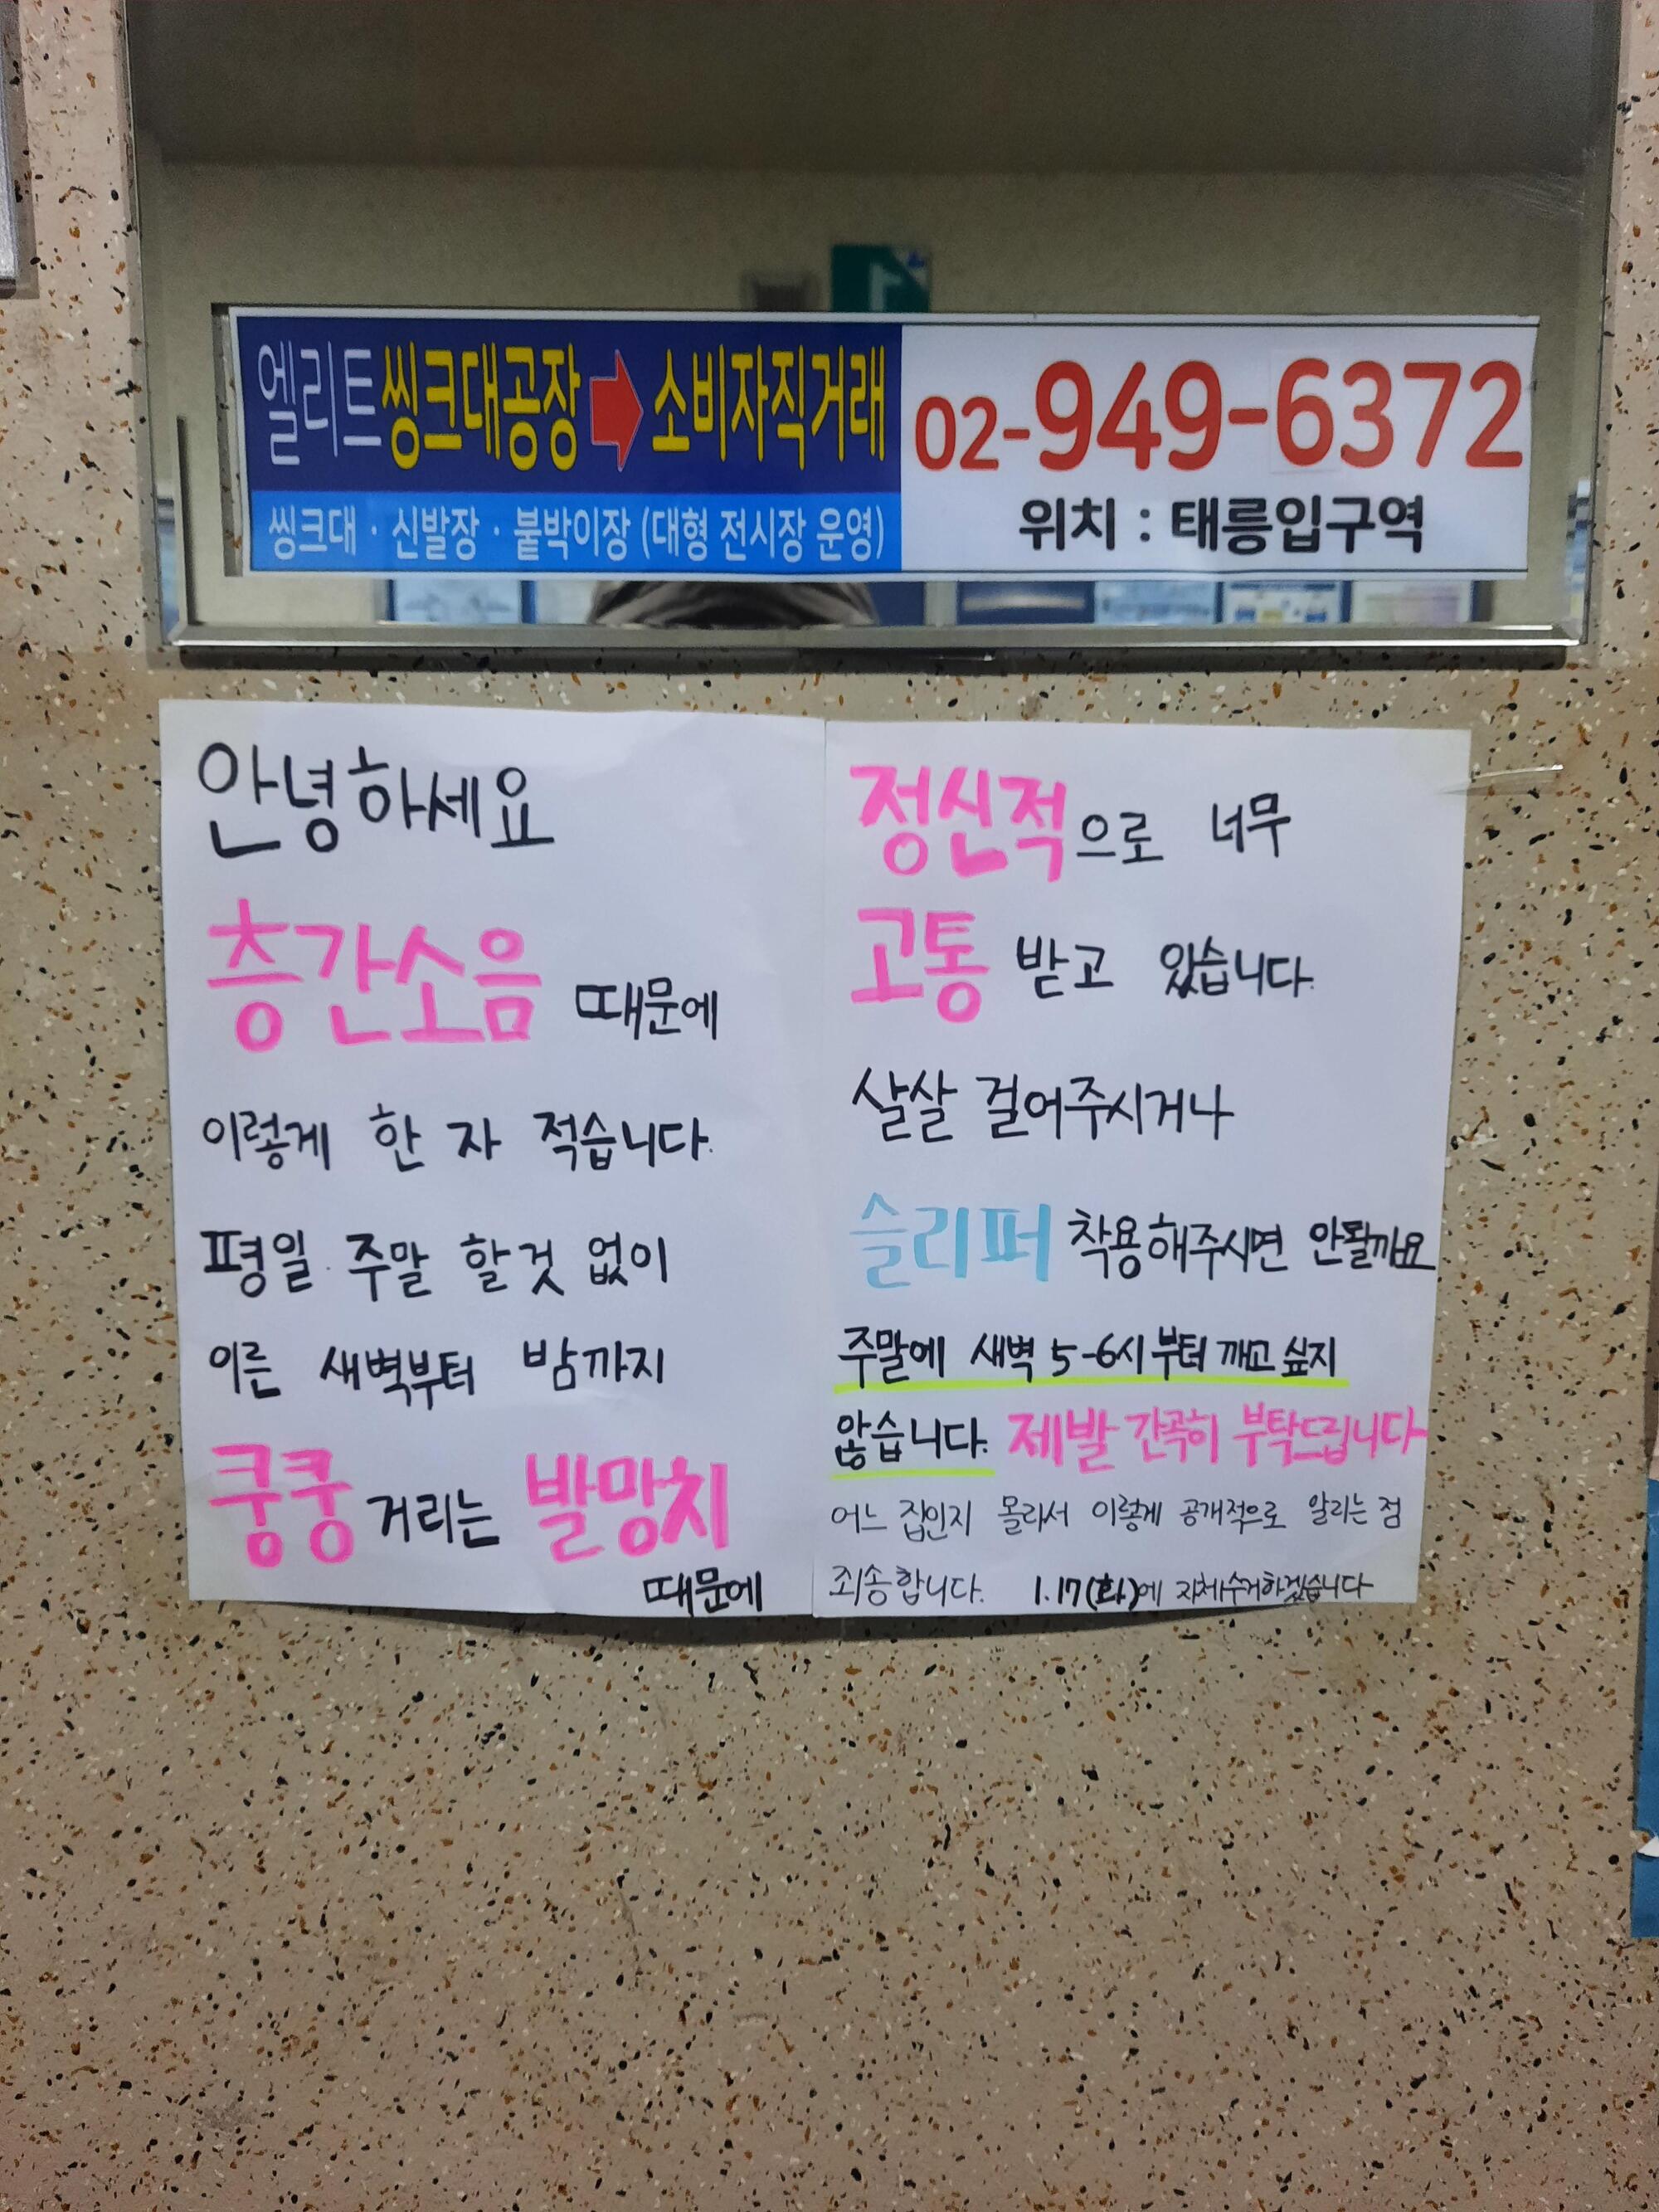 엘리트씽크대공장➡소비자직거래
씽크대 · 신발장 · 붙박이장 (대형 전시장 운영)
02-949-6372
위치 : 태릉입구역
안녕하세요
층간소음 때문에
이렇게 한 자 적습니다.
평일 주말 할것 없이
이른 새벽부터 밤까지
쿵쿵 거리는 발망치
때문에
정신적으로 너무
고통 받고 있습니다.
살살 걸어주시거나
슬리퍼 착용해주시면 안될까요
주말에 새벽 5-6시부터 깨고 싶지
않습니다. 제발 간곡히 부탁드립니다
어느 집인지 몰라서 이렇게 공개적으로 알리는 점
죄송합니다. 1.17(화)에 자체수거하겠습니다